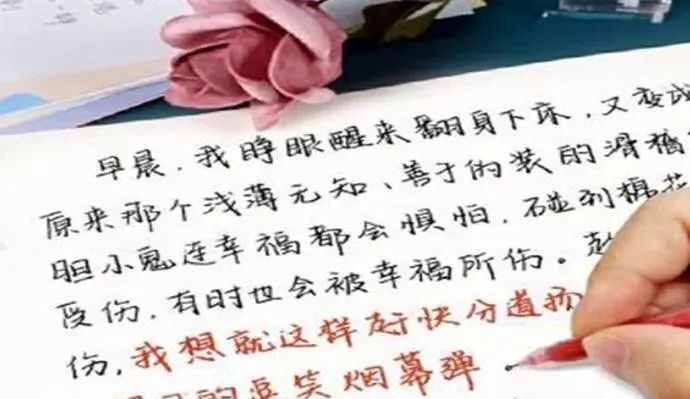 早晨，我睁眼醒来翻身下床，又变成
原来那个浅薄无知、善于的装的滑稽
胆小鬼连幸福都会惧怕，碰到棉花
受伤，有时也会被幸福所伤。趁
伤，我想就这样赶快分道扬
的逗笑烟幕弹